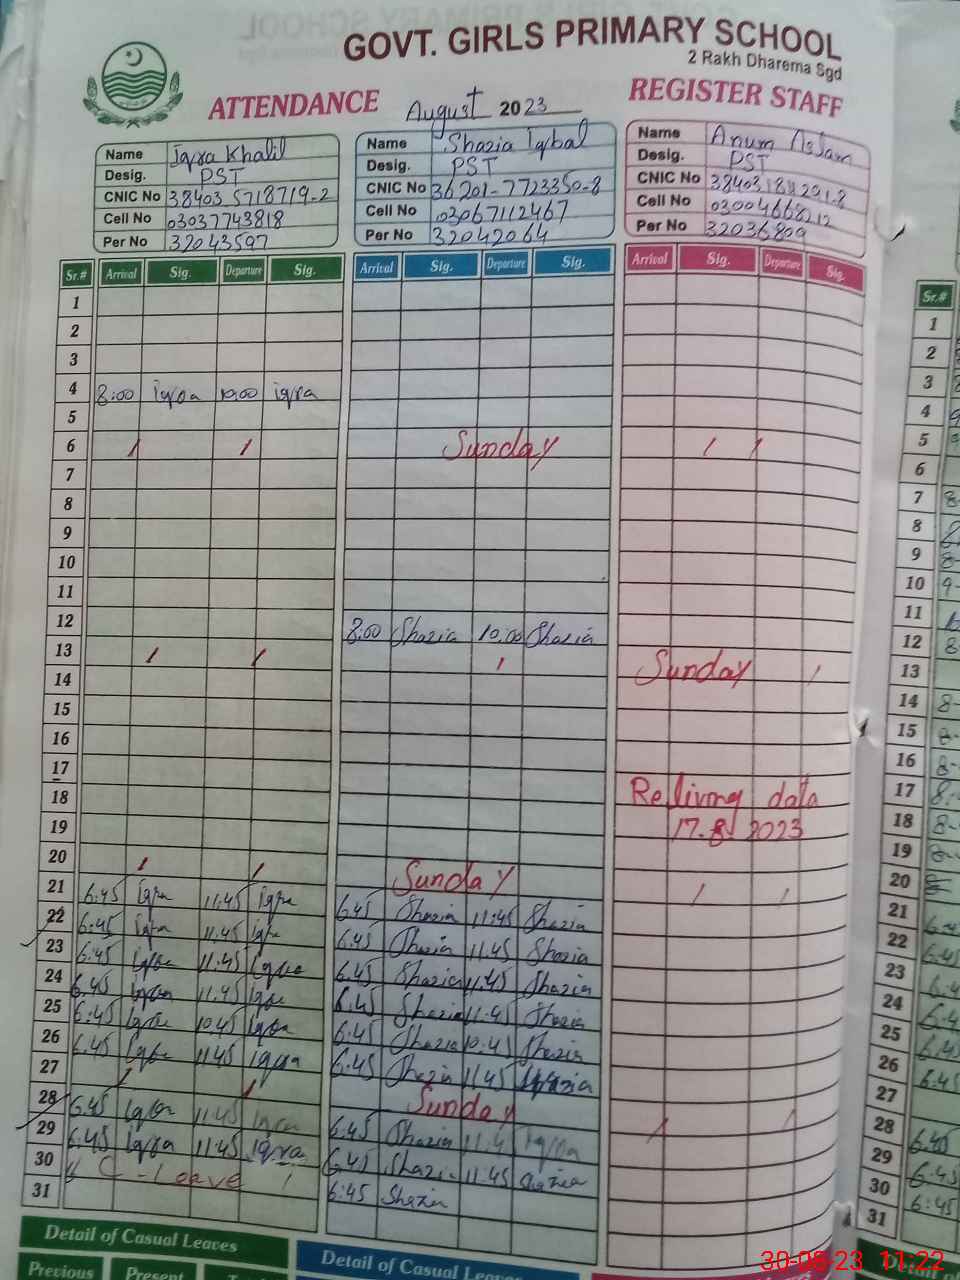 GOVT. GIRLS PRIMARY SCHOOL
2 Rakh Dharema Sgd
ATTENDANCE August 2023 REGISTER STAFF
Name Iqra Khalil
Desig. PST
CNIC No 38403 5718719-2
Cell No 03037743818
Per No 32043597
Name Shazia Iqbal
Desig. PST
CNIC No 36201-7723350-8
Cell No 03067112467
Per No 32042064
Name Anum Aslam
Desig. PST
CNIC No
Cell No 03004668212
Per No 32036809
Sr.# Arrival Sig. Departure Sig. Arrival Sig. Departure Sig. Arrival Sig. Departure Sig. Sr.#
1
2
3
4 8:00 iqra 10:00 iqra
5
6 Sunday
7
8
9
10
11
12 8:00 Shazia 10:00 Shazia
13 Sunday
14
15
16
17 Relivong data
18 17-8 2023
19
20 Sunday
21 6:45 Iqra 11:45 iqra 6:45 Shazia 11:45 Shazia
22 6:45 Iqra 11:45 iqra 6:45 Shazia 11:45 Shazia
23 6:45 Iqra 11:45 Iqra 6:45 Shazia 11:45 Shazia
24 6:45 Iqra 11:45 Iqra 6:45 Shazia 11:45 Shazia
25 6:45 Iqra 10:45 Iqra 6:45 Shazia 10:45 Shazia
26 6:45 Iqra 11:45 iqra 6:45 Shazia 11:45 Shazia
27 Sunday
28 6:45 Iqra 11:45 Iqra 6:45 Shazia 11:4
29 6:45 Iqra 11:45 Iqra 6:45 Shazi 11:45 Shazia
30 C-Leave 6:45 Shazia
31
Detail of Casual Leaves
Previous Present
Detail of Casual Leaves
1
2
3
4
5
6
7
8
9
10
11
12
13
14
15
16
17
18
19
20
21
22
23
24
25
26
27
28 6:45
29 6:45
30 6:45
31
Detail of
30-08-23 11:22